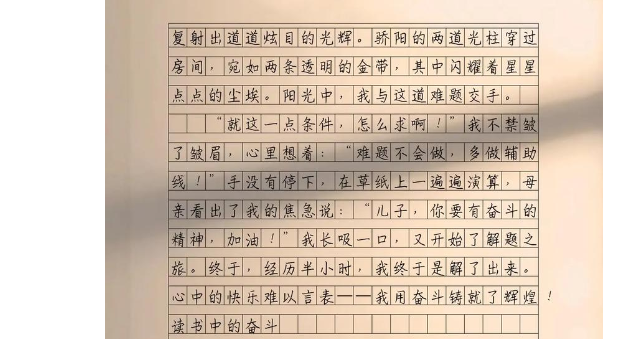 复射出道道炫目的光辉。骄阳的两道光柱穿过
房间，宛如两条透明的金带，其中闪耀着星星
点点的尘埃。阳光中，我与这道难题交手。
“就这一点条件，怎么求啊！”我不禁皱
了皱眉，心里想着：“难题不会做，多做辅助
线！”手没有停下，在草纸上一遍遍演算，母
亲看出了我的焦急说：“儿子，你要有奋斗的
精神，加油！”我长吸一口，又开始了解题之
旅。终于，经历半小时，我终于是解了出来。
心中的快乐难以言表——我用奋斗铸就了辉煌！
读书中的奋斗